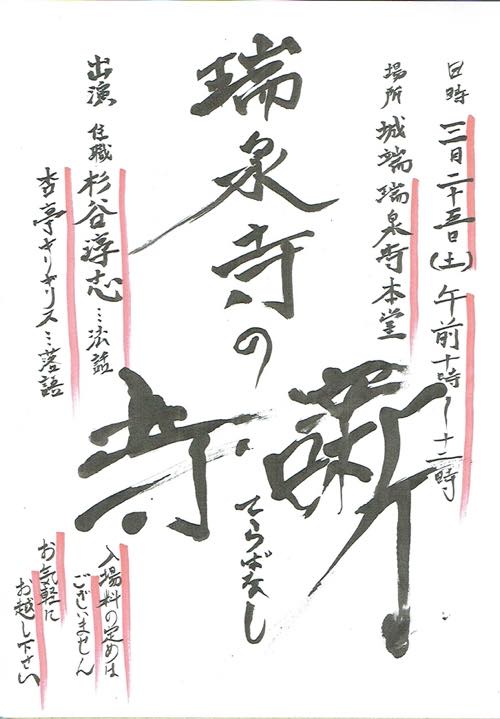 日時 三月二十五日(土)午前十時〜十二時
場所 城端瑞泉寺本堂
瑞泉寺の
寺噺
てらばなし
出演 住職 杉谷淳志…法話
杏亭キリギリス…落語
入場料の定めは
ございません
お気軽に
お越し下さい